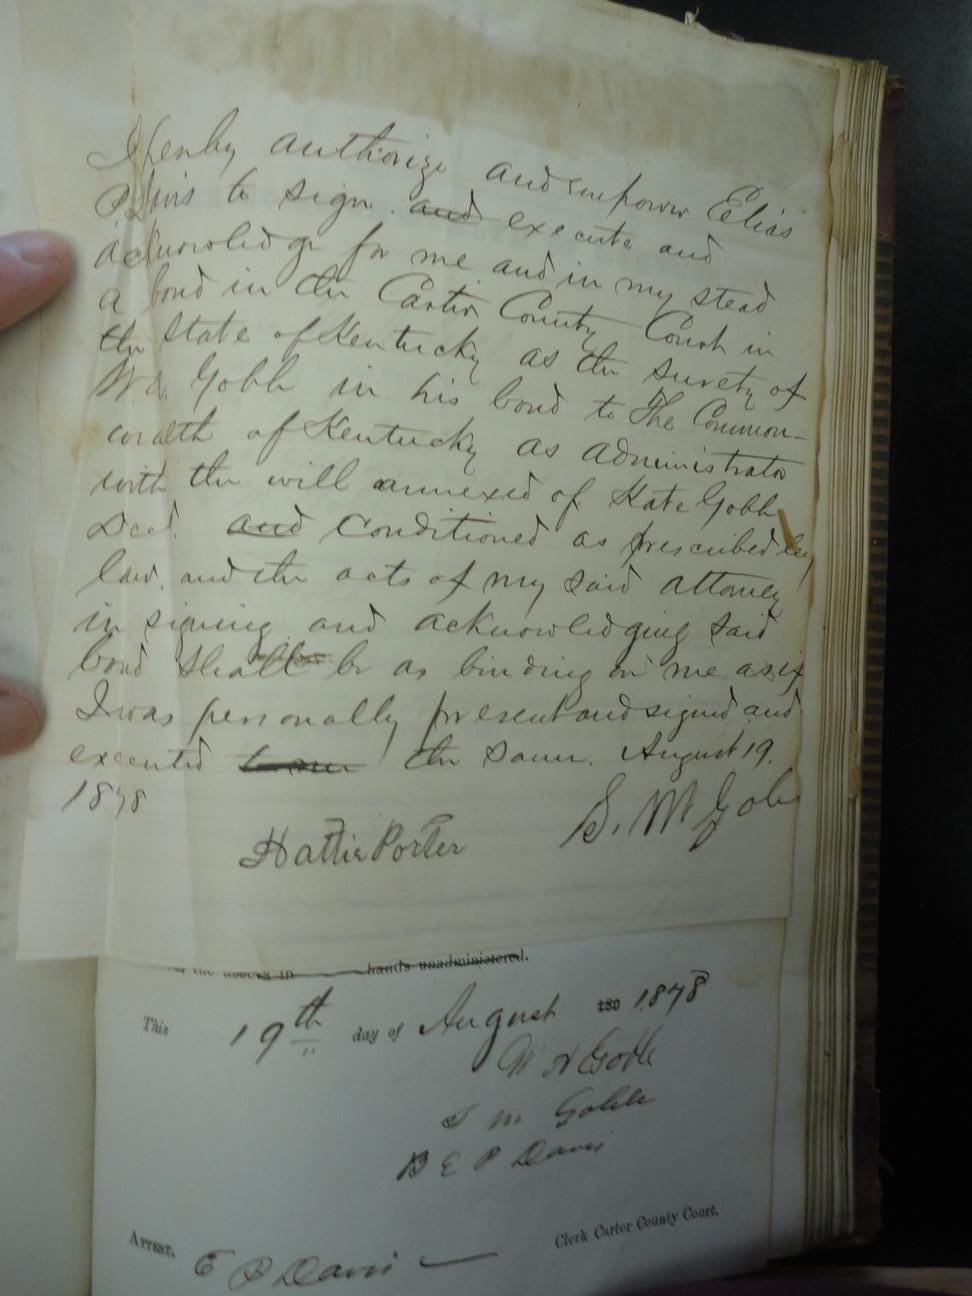 I hereby authorize and empower Elias
P Davis to sign and execute and
acknowledge for me and in my stead
a bond in the Carter County Court in
the State of Kentucky as the surety of
W.A. Goble in his bond to The Common-
wealth of Kentucky as administrator
with the will annexed of Kate Goble
Decd. and conditioned as prescribed by
law, and the acts of my said attorney
in signing and acknowledging said
bond shall be as binding on me as if
I was personally present and signed and
executed the same. August 19.
1878
S. M Goble
Hattie Porter
the assets in hands unadministered.
This 19th day of August 180 1878
W A Goble
S M Goble
B E P Davis
Attest. E P Davis Clerk Carter County Court.